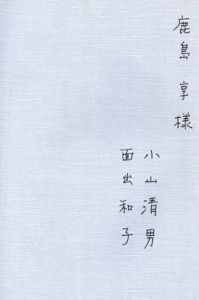 鹿島 享様
小山清男
面出和子